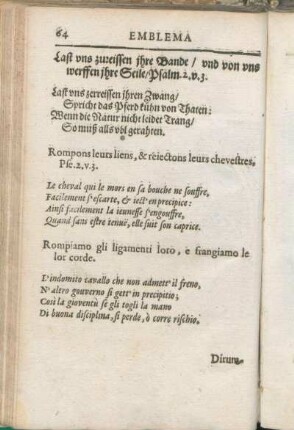 64 EMBLEMA
Last vns zureissen jhre Bande / vnd von vns
werffen jhre Seile / Psalm. 2. v. 3.
Last vns zerreissen jhren Zwang /
Spricht das Pferd kühn von Thaten:
Wenn die Natur nicht leidet Trang /
So muß alls vbl gerahten.
Rompons leurs liens, & reiectons leurs chevestres,
Psc. 2. v. 3.
Le cheval qui le mors en sa bouche ne souffre,
Facilement s'escarte, & iett' en precipice:
Ainsi facilement la ieunesse s'engouffre,
Quand sans estre tenuë, elle suit son caprice.
Rompiamo gli ligamenti loro, e frangiamo le
lor corde.
L'indomito cavallo che non admett' il freno,
N'altro gouverno si gett' in precipitio;
Così la gioventù se gli togli la mano
Di buona disciplina, si perde, ò corre rischio.
Dicum-